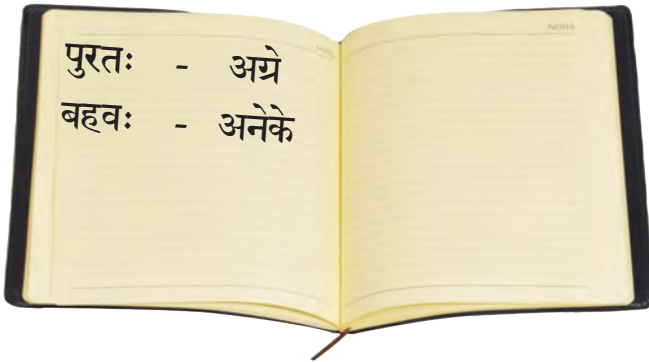 पुरतः - अग्रे
बहवः - अनेके